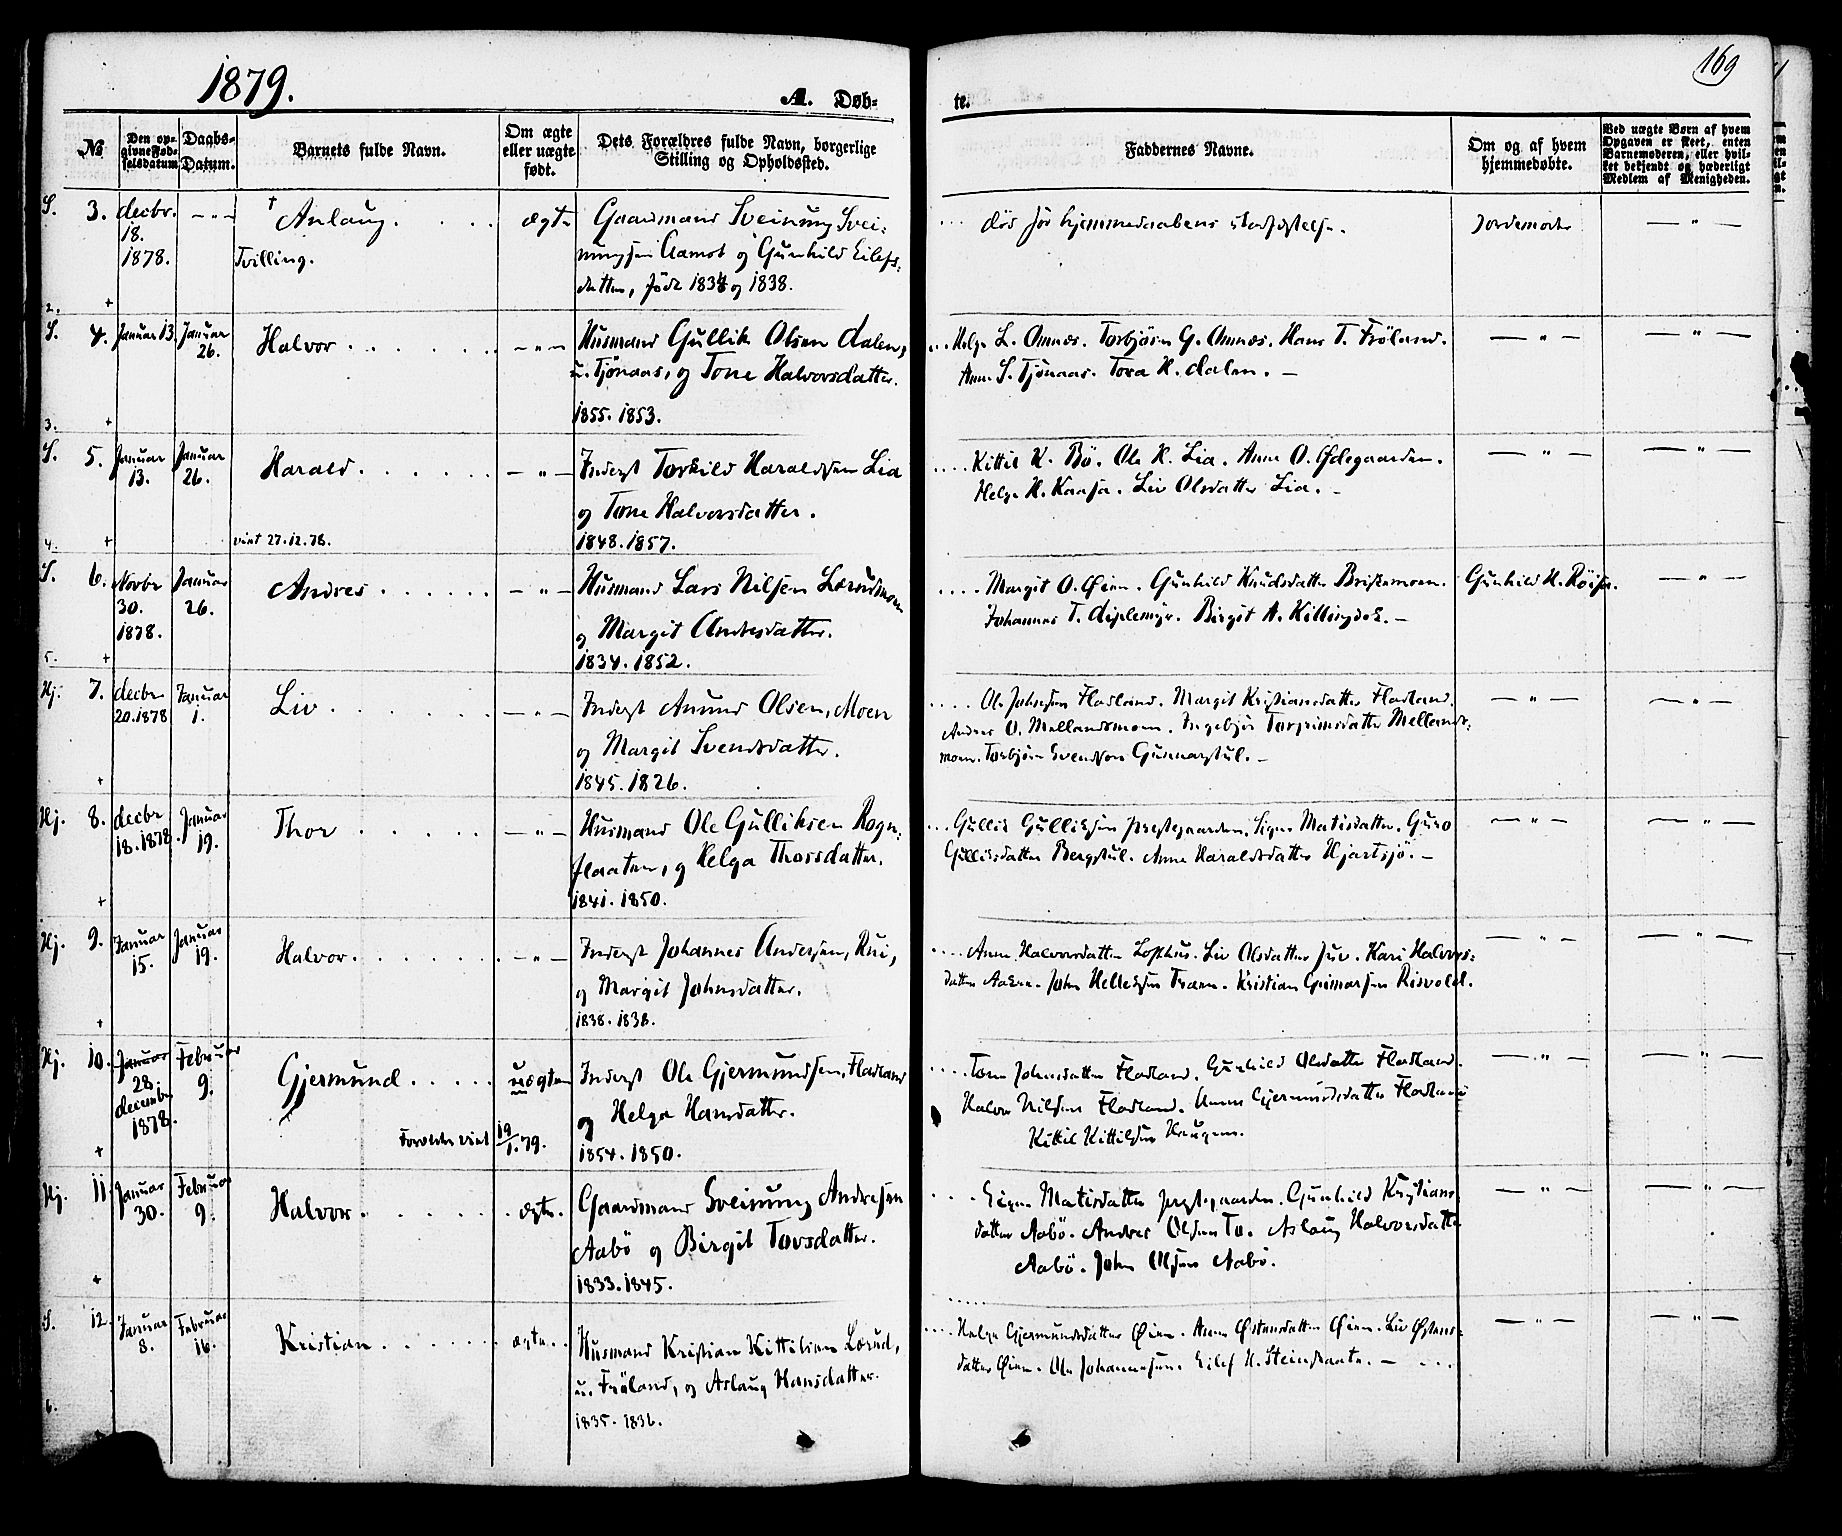 1879.
169
A. Døb-
te.
№
Den op-
givne Fød-
selsdatum
Daabs-
Datum.
Barnets fulde Navn.
Om ægte
eller uægte
født.
Dets Forældres fulde Navn, borgerlige
Stilling og Opholdssted.
Faddernes Navne.
Om og af hvem
hjemmedøbte.
Ved uægte Børn af hvem
Opgaven er skeet, enten
Barnemoderen, eller hvil-
ket bekjendt og hæderligt
Medlem af Menigheden.
S. 3. decbr. 18. 1878. — " — † Aslaug. ægte Gaardmand Sveinung Svei-
nungsen Aamot og Gunhild Eilefs-
datter, fødte 1834 og 1838.
Tvilling.
død før hjemmedaabens stadfæstelse. Jordemoder — " —
2. +
S. 4. Januar 13. Januar 26. Halvor — " — Husmand Gullik Olsen Dalen,
u. Tjønaas, og Tone Halvorsdatter.
1855. 1853.
Helge L. Omnæs. Torbjørn G. Omnæs. Hans T. Frøland.
Anne S. Tjønaas. Tora H. Dalen. — — " — — " —
3. +
S. 5. Januar 13. Januar 26. Harald — " — Inderst Torkild Haraldsen Lia
og Tone Halvorsdatter.
1848. 1857.
Kittil K. Bø. Ole H. Lia. Anne O. Ødegaarden.
Helge H. Kaasa. Liv Olsdatter Lia. — — " — — " —
4. + viet 27.12.78.
S. 6. Novbr 30. 1878. Januar 26. Andres — " — Husmand Lars Nilsen Lærudmoen
og Margit Andresdatter.
1834. 1852.
Margit O. Øien. Gunhild Knudsdatter Briskemoen.
Johannes T. Diplemyr. Birgit A. Killingdal. — Gunhild H. Røisa. — " —
5. +
Hj. 7. decbr 20. 1878 Januar 1. Liv — " — Inderst Anund Olsen, Moen
og Margit Svendsdatter.
1845. 1826.
Ole Johnsen Fladland. Margit Kristiansdatter Fladland.
Andres O. Mellandsmoen. Ingebjør Torgrimsdatter Mellands-
moen. Torbjørn Svendsen Gunnarstul. — — " — — " —
+
Hj. 8. decbr 18. 1878. Januar 19. Thor — " — Husmand Ole Gulliksen Rogn-
flaaten, og Helga Thorsdatter.
1841. 1850.
Gullik Gulliksen Prestegaarden. Signe Matisdatter. Guro
Gulliksdatter Bergstul. Anne Haraldsdatter Hjartsjø. — — " — — " —
+
Hj. 9. Januar 15. Januar 19. Halvor. — " — Inderst Johannes Andersen, Rui,
og Margit Johnsdatter.
1838. 1838.
Anne Halvorsdatter Lofthus. Liv Olsdatter Juv. Kari Halvors-
datter Aakre. John Helleksen Traen. Kristian Gunnarsen Risvold. — " — — " —
+
Hj. 10. Januar 28 decembr 1878. Februar 9. Gjermund uægte Inderst Ole Gjermundsen, Fladland
og Helga Hansdatter.
1854. 1850.
Forældre viet 19/1.79.
Tone Johnsdatter Fladland. Gunhild Olsdatter Fladland.
Halvor Nilsen Fladland. Anne Gjermundsdatter Fladland
Kittil Kittilsen Haugen. — " — — " —
+
Hj. 11. Januar 30. Februar 9. Halvor. ægte. Gaardmand Sveinung Andresen
Aabø og Birgit Tovsdatter.
1833. 1845.
Signe Matisdatter Prestegaarden. Gunhild Kristians-
datter Aabø. Andres Olsen To. Aslaug Halvorsdatter
Aabø. John Olsen Aabø. — " — — " —
+
S. 12. Januar 8. Februar 16. Kristian ægte. Husmand Kristian Kittilsen Lærud,
u. Frøland, og Aslaug Hansdatter.
1835. 1836.
Helge Gjermundsdatter Øien. Anne Østensdatter Øien. Liv Østens-
datter Øien. Ole Johannessen. Eilef H. Steinsraate. — — " — — " —
6.